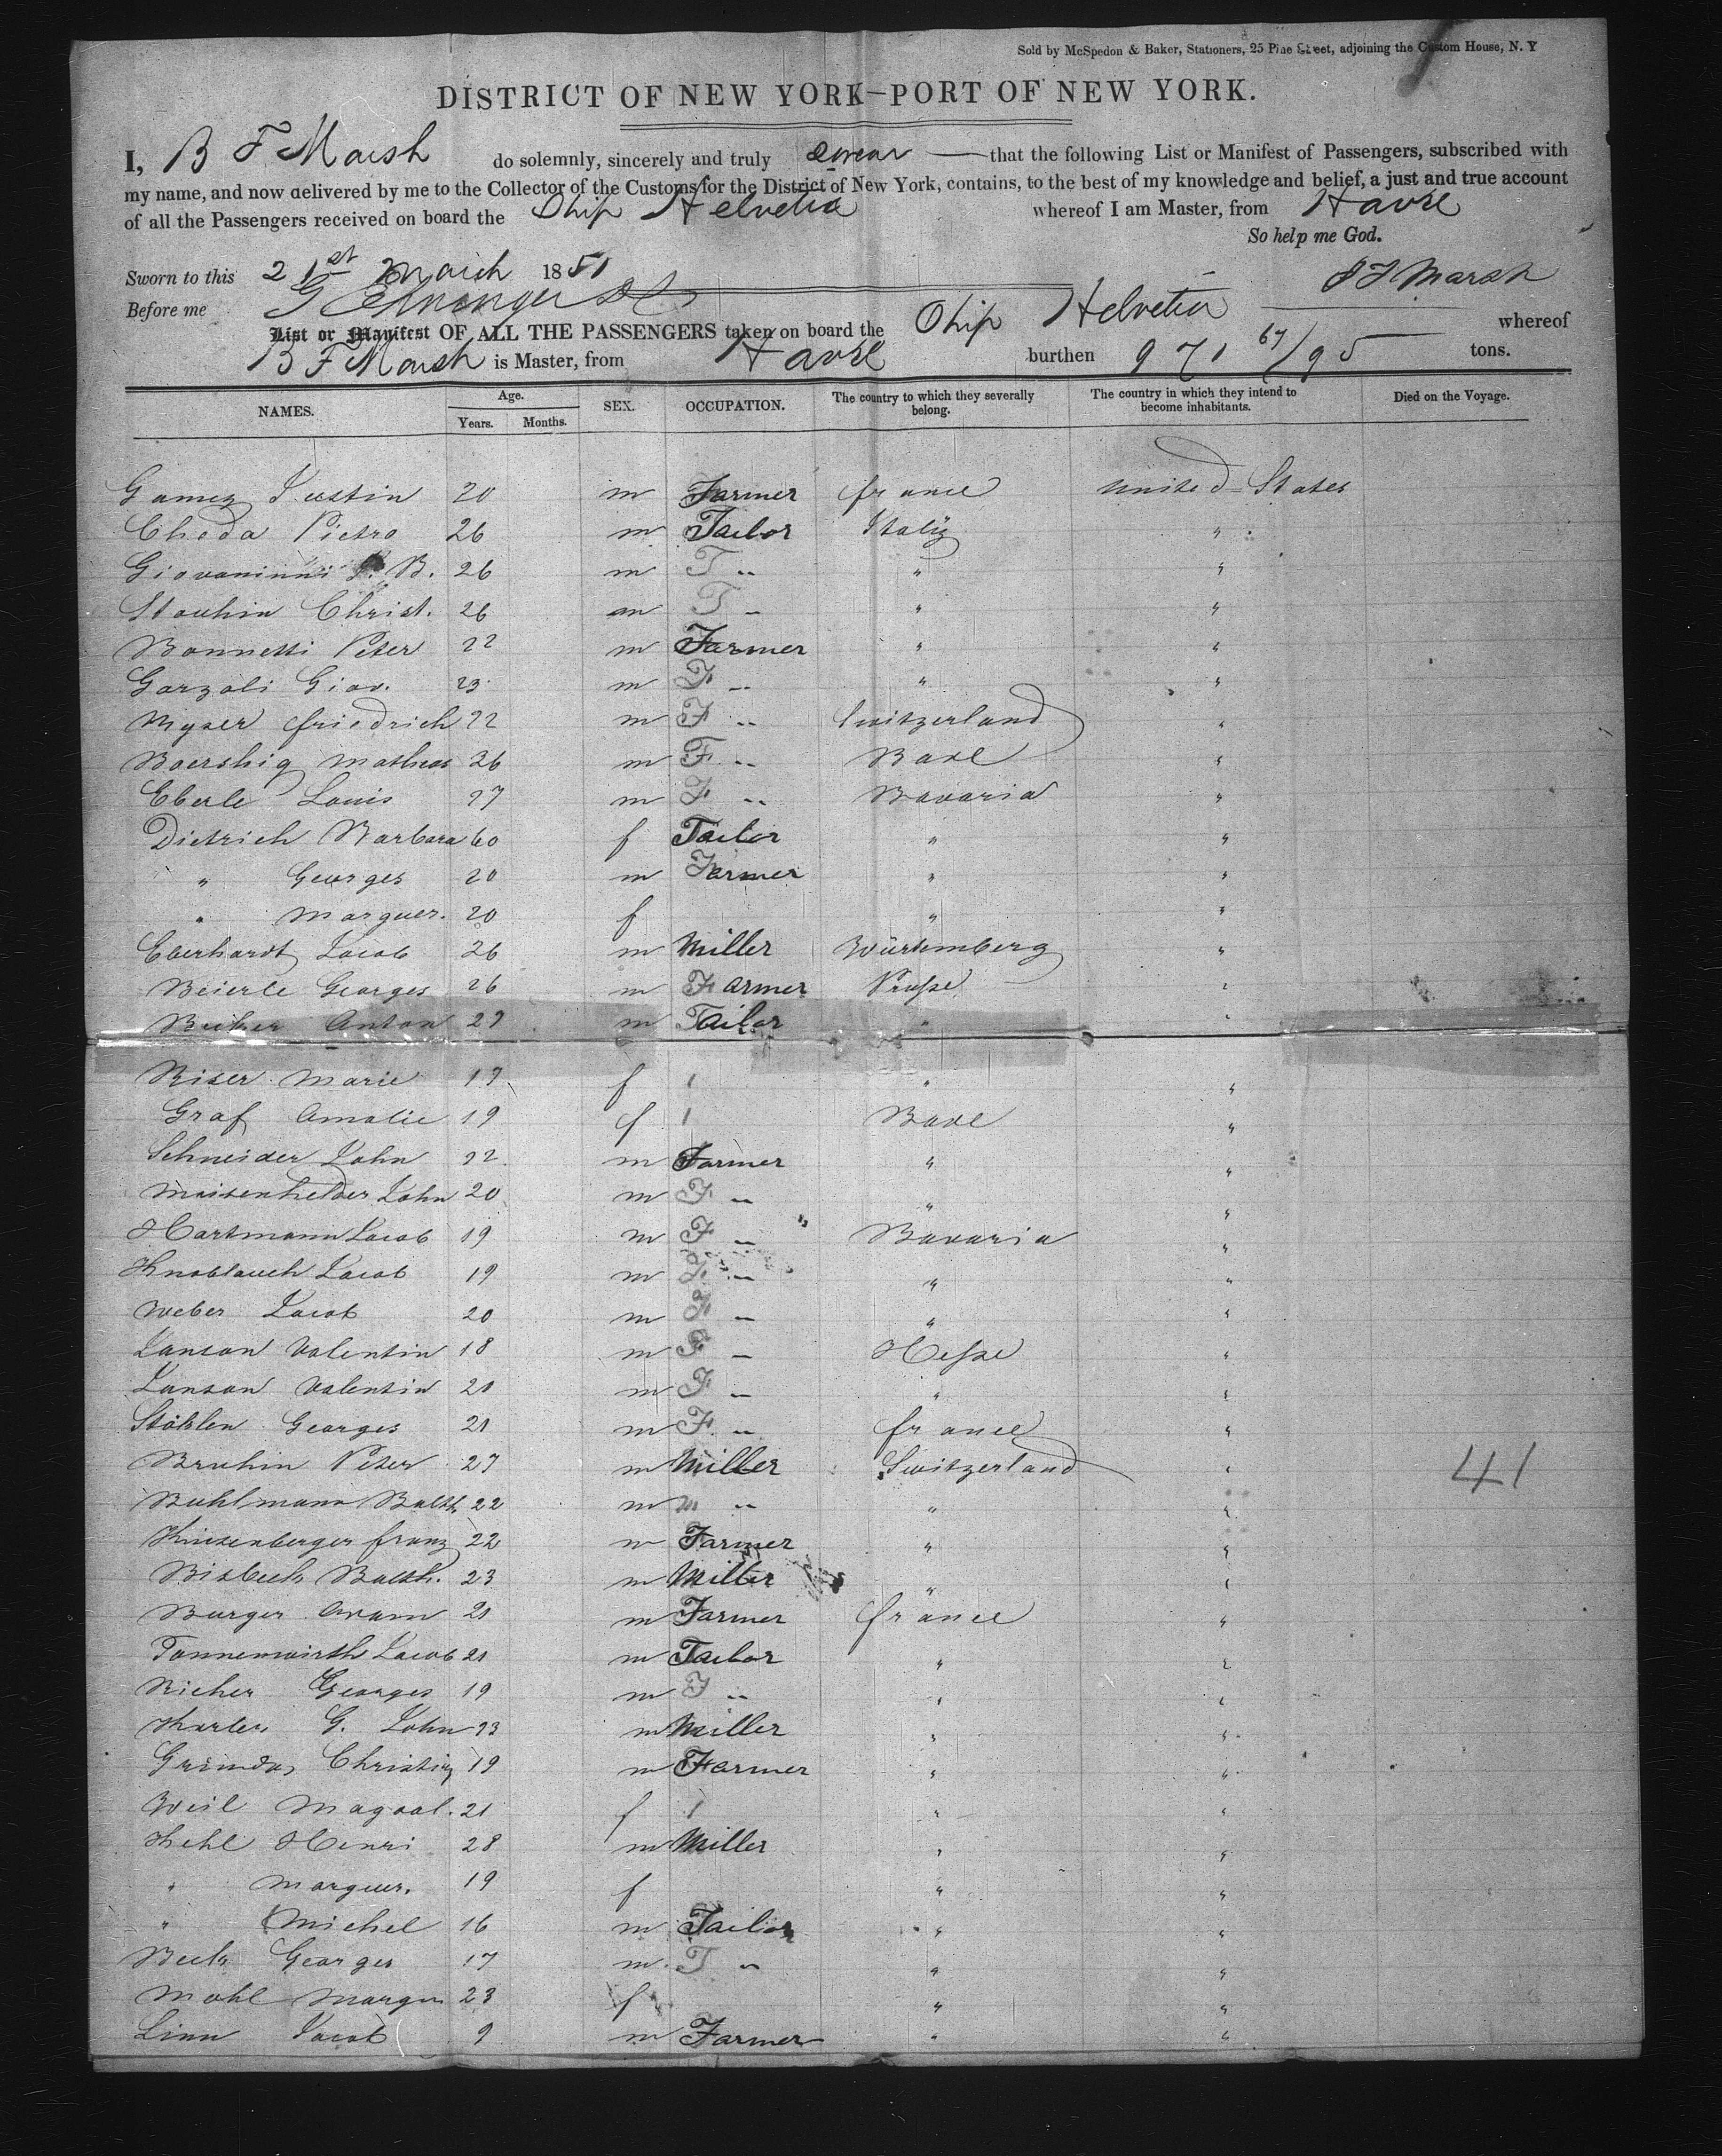 Sold by McSpedon & Baker, Stationers, 25 Pine Street, adjoining the Custom House, N. Y
DISTRICT OF NEW YORK—PORT OF NEW YORK.
I, B F Marsh do solemnly, sincerely and truly swear that the following List or Manifest of Passengers, subscribed with
my name, and now delivered by me to the Collector of the Customs for the District of New York, contains, to the best of my knowledge and belief, a just and true account
of all the Passengers received on board the Ship Helvetia whereof I am Master, from Havre
So help me God.
Sworn to this 21st March 1851 B F Marsh
Before me
List or Manifest OF ALL THE PASSENGERS taken on board the Ship Helvetia whereof
B F Marsh is Master, from Havre burthen 971 67/95 tons.
NAMES. Age. Years. Months. SEX. OCCUPATION. The country to which they severally belong. The country in which they intend to become inhabitants. Died on the Voyage.
Gamez Justin 20 m Farmer france United States
Cheda Pietro 26 m Tailor Italy "
Giovaninni B. 26 m T " " "
Stouhin Christ. 26 m T " " "
Bonnetti Peter 22 m Farmer " "
Garzoli Giov. 23 m F " " "
Myser friedrich 22 m F " Switzerland "
Boershig Matheas 36 m F " Bade "
Eberle Louis 27 m F " Bavaria "
Dietrich Barbara 60 f Tailor " "
" Georges 20 m Farmer " "
" Marguer. 20 f " "
Eberhardt Jacob 26 m Miller Würtemberg "
Beierle Georges 26 m Farmer Prusse "
Anton 27 m Tailor " "
Riser Marie 17 f 1 " "
Graf Amalie 19 f 1 Bade "
Schneider John 22 m Farmer " "
Maisenhelder John 20 m F " " "
Hartmann Jacob 19 m F " Bavaria "
Knoblauch Jacob 19 m F " " "
Weber Jacob 20 m F " " "
Janson Valentin 18 m F " Hesse "
Janson Valentin 20 m F " " "
Stöhlen Georges 21 m F " france "
Bruhin Peter 27 m Miller Switzerland " 41
Buhlmann Balth 22 m m " " "
Kriesenberger franz 22 m Farmer " "
Bisbech Balth. 23 m Miller " "
Burger Adam 21 m Farmer france "
Tannenwirth Jacob 21 m Tailor " "
Richer Georges 19 m T " " "
G. John 23 m Miller " "
Christin 19 m Farmer " "
Weil Magdal. 21 f 1 " "
Kehl Henri 28 m Miller " "
" Marguer. 19 f " "
" Michel 16 m Tailor " "
Beck Georges 17 m T " " "
Mohl Margu 23 f " "
Linn Jacob 9 m Farmer " "